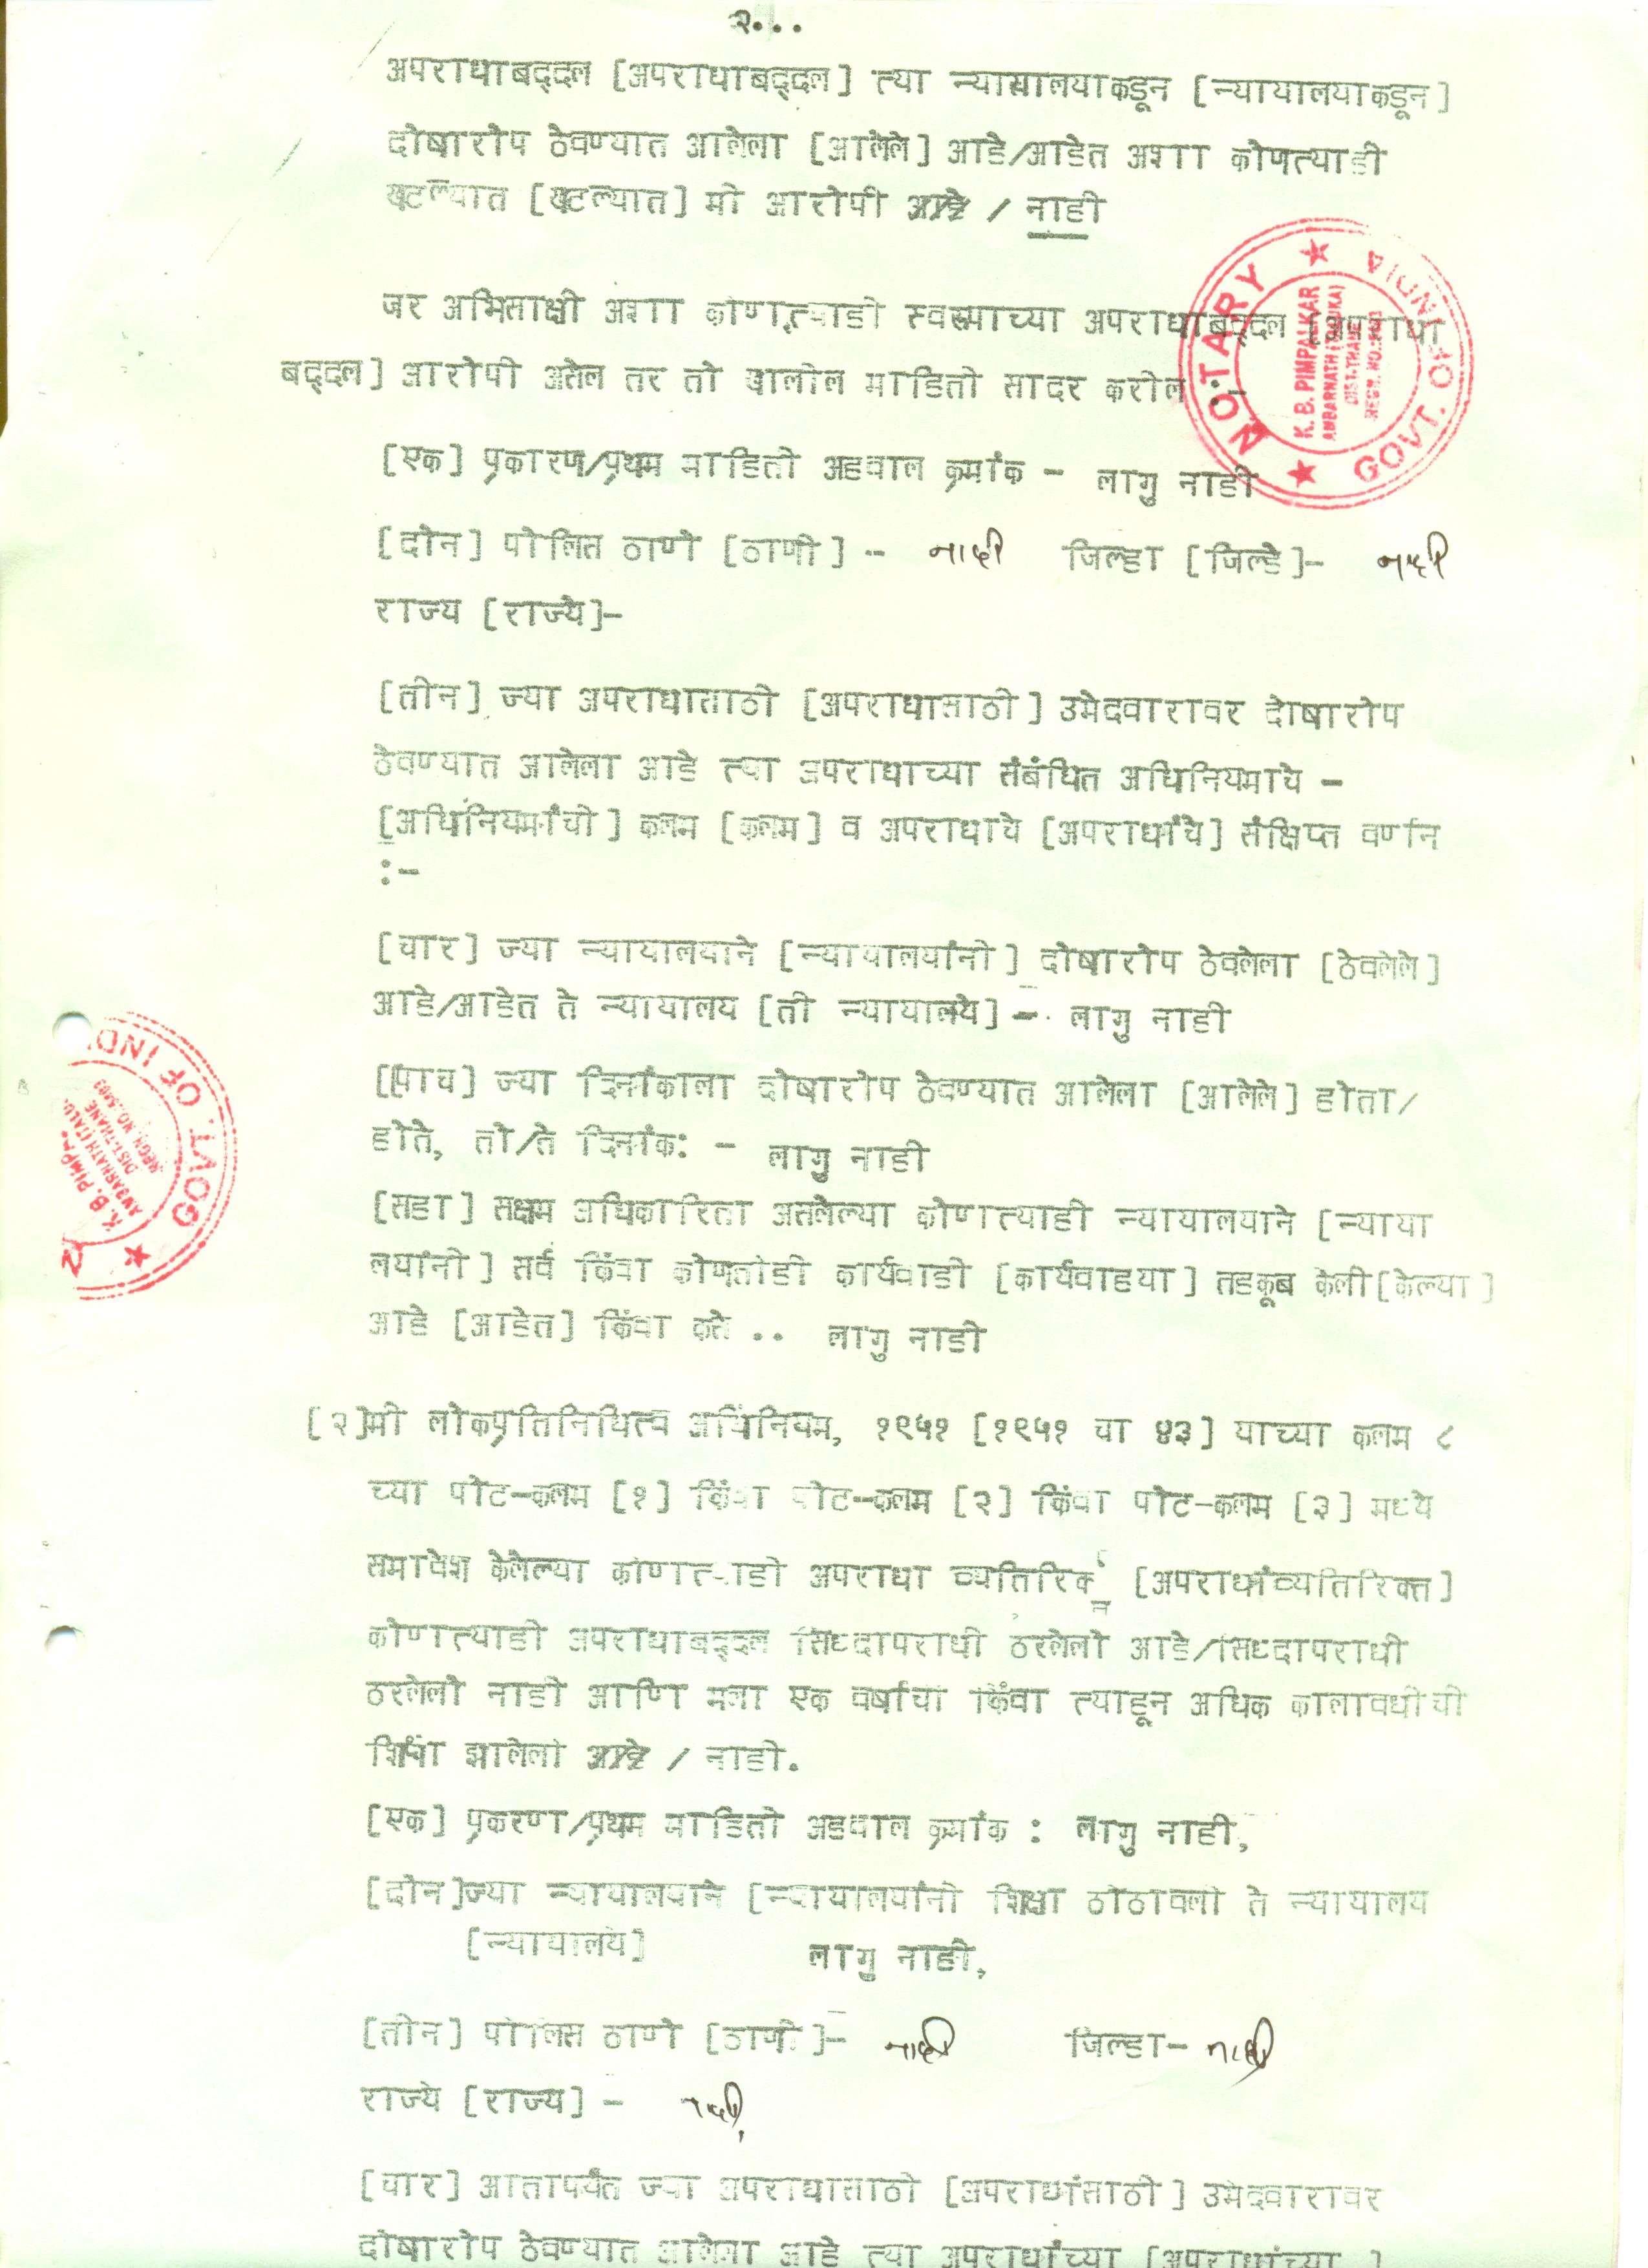 २...
अपराधाबद्दल [अपराधाबद्दल] त्या न्यायालयाकडून [न्यायालयाकडून]
दोषारोप ठेवण्यात आलेला [आलेले] आहे/आहेत अशा कोणत्याही
खटल्यात [खटल्यात] मी आरोपी आहे / नाही
जर अभिसाक्षी अशा कोणत्याही स्वरुपाच्या अपराधाबद्दल [अपराधा
बद्दल] आरोपी असेल तर तो खालील माहिती सादर करील :-
[एक] प्रकारण/प्रथम माहिती अहवाल क्रमांक - लागु नाही
[दोन] पोलिस ठाणे [ठाणी] -- नाही जिल्हा [जिल्हे]- नाही
राज्य [राज्ये]-
[तीन] ज्या अपराधासाठी [अपराधासाठी] उमेदवारावर दोषारोप
ठेवण्यात आलेला आहे त्या अपराधाच्या संबंधित अधिनियमाचे -
[अधिनियमांची] कलम [कलम] व अपराधाचे [अपराधांचे] संक्षिप्त वर्णन
:-
[चार] ज्या न्यायालयाने [न्यायालयांनी] दोषारोप ठेवलेला [ठेवलेले]
आहे/आहेत ते न्यायालय [ती न्यायालये] - लागु नाही
[पाच] ज्या दिनांकाला दोषारोप ठेवण्यात आलेला [आलेले] होता/
होते, तो/ते दिनांक: - लागु नाही
[सहा] सक्षम अधिकारिता असलेल्या कोणत्याही न्यायालयाने [न्याया
लयांनी] सर्व किंवा कोणतीही कार्यवाही [कार्यवाहया] तहकूब केली[केल्या]
आहे [आहेत] किंवा कसे .. लागु नाही
[२]मी लोकप्रतिनिधित्व अधिनियम, १९५१ [१९५१ चा ४३] याच्या कलम ८
च्या पोट-कलम [१] किंवा पोट-कलम [२] किंवा पोट-कलम [३] मध्ये
समावेश केलेल्या कोणत्याही अपराधा व्यतिरिक्त [अपराधांव्यतिरिक्त]
कोणत्याही अपराधाबद्दल सिध्दापराधी ठरलेलो आहे/सिध्दापराधी
ठरलेलो नाही आणि मला एक वर्षाची किंवा त्याहून अधिक कालावधीची
शिक्षा झालेली आहे / नाही.
[एक] प्रकरण/प्रथम माहिती अहवाल क्रमांक : लागु नाही,
[दोन]ज्या न्यायालयाने [न्यायालयांनी शिक्षा ठोठावली ते न्यायालय
[न्यायालये] लागु नाही,
[तीन] पोलिस ठाणे [ठाणी]- नाही जिल्हा- नाही
राज्ये [राज्य] - नाही,
[चार] आतापर्यंत ज्या अपराधासाठी [अपराधांसाठी] उमेदवारावर
दोषारोप ठेवण्यात आलेला आहे त्या अपराधांच्या [अपराधांच्या ]
NOTARY
GOVT. OF INDIA
K. B. PIMPALKAR
AMBARNATH (TALUKA)
DIST-THANE
GOVT. OF INDI
K. B. PIMP
AMBARNATH (TALU
DIST-THANE